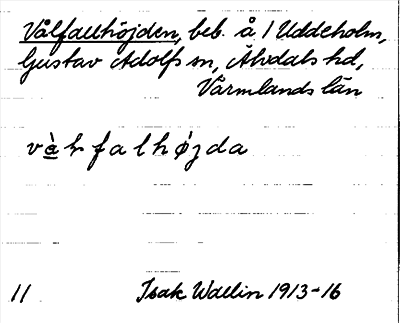 Vålfallhöjden, beb. å 1 Uddeholm,
Gustav Adolfs sn, Älvdals hd,
Värmlands län
vàłfalhǿjda
11 Isak Wallin 1913-16